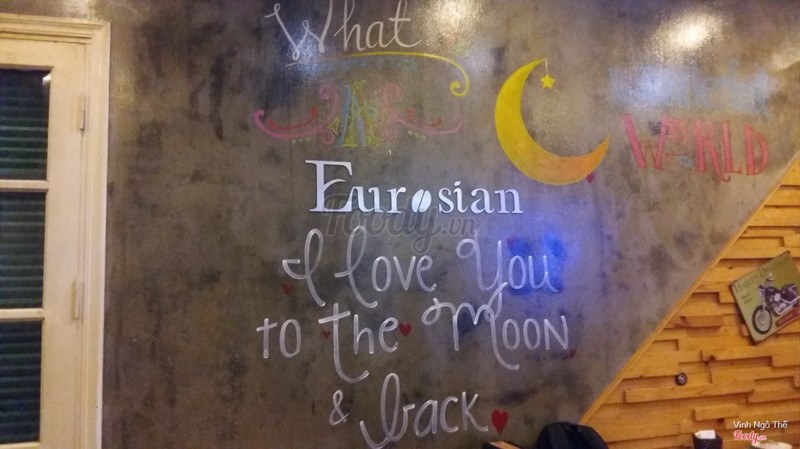 What
A
WORLD
Eurosian
Foody.vn
I love You
to the Moon
& back
Vinh Ngô Thế
Foody.vn